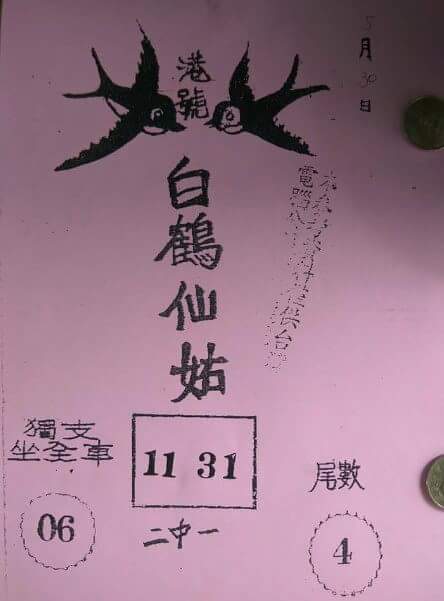 港號
5月30日
白鶴仙姑
獨支
坐全車
06
11 31
二中一
尾數
4